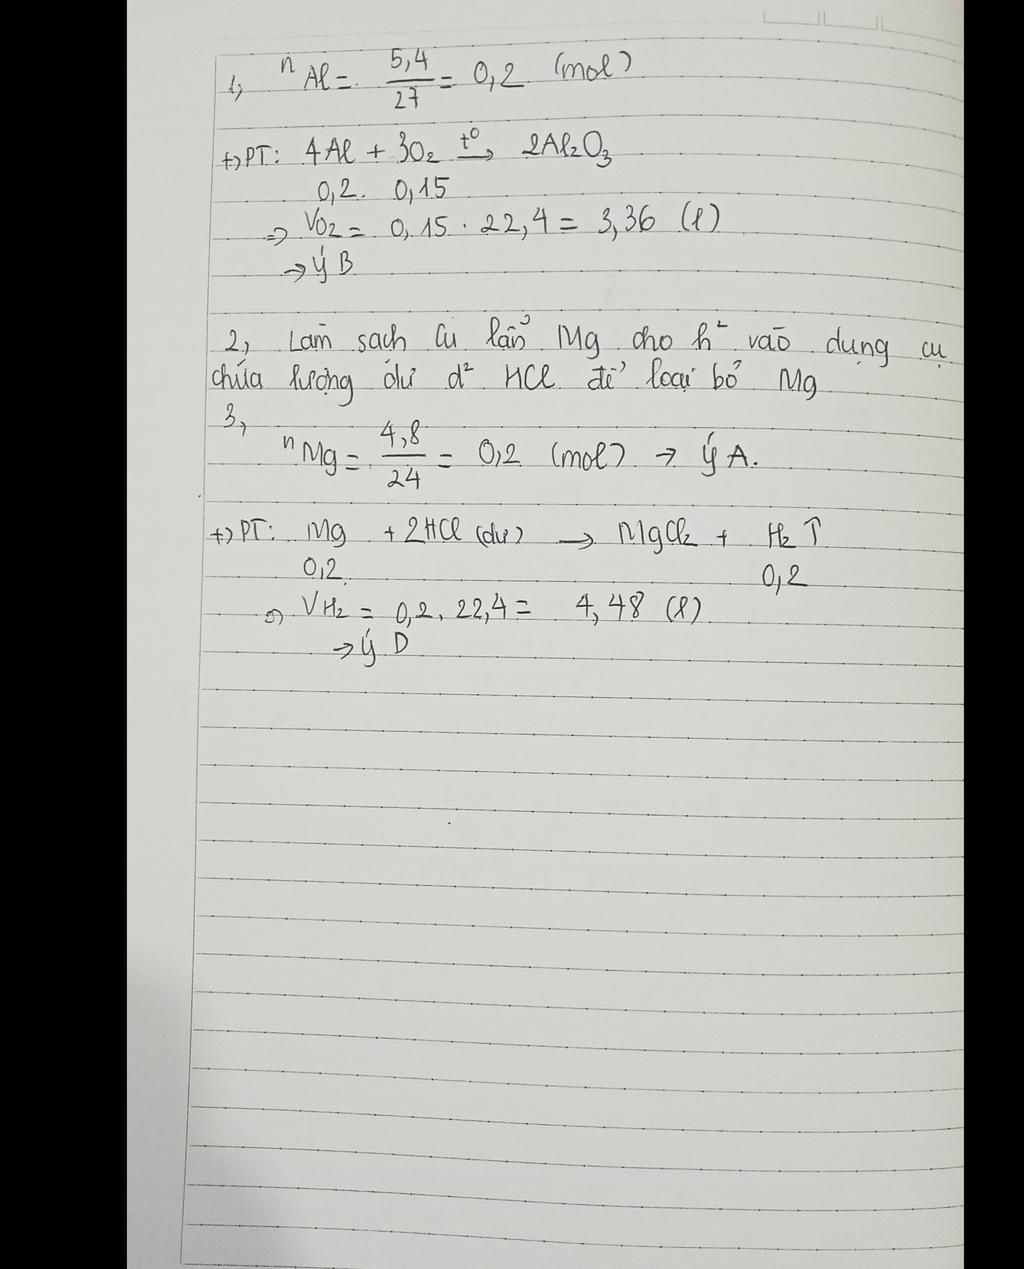 1, nAl = 5,4/27 = 0,2 (mol)
+) PT: 4Al + 3O₂ t⁰→ 2Al₂O₃
0,2. 0,15
=> VO₂ = 0,15 . 22,4 = 3,36 (l)
→ Ý B
2, Làm sạch Cu lẫn Mg cho h² vào dụng cụ
chứa lượng dư d² HCl để loại bỏ Mg
3,
nMg = 4,8/24 = 0,2 (mol) → Ý A.
+) PT: Mg + 2HCl (dư) → MgCl₂ + H₂↑
0,2. 0,2
=> VH₂ = 0,2. 22,4 = 4,48 (l)
→ Ý D